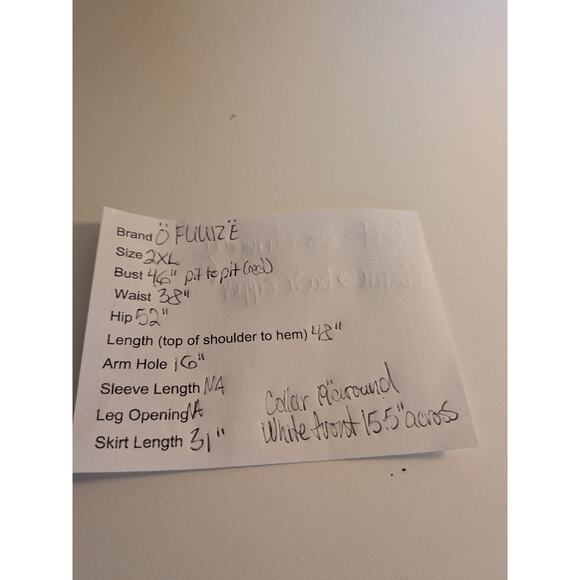 Brand Ö FUUIZË
Size 2XL
Bust 46" pit to pit (red)
Waist 38"
Hip 52"
Length (top of shoulder to hem) 48"
Arm Hole 16"
Sleeve Length NA
Leg Opening NA
Skirt Length 31"
Collar 19" around
White front 15.5" across